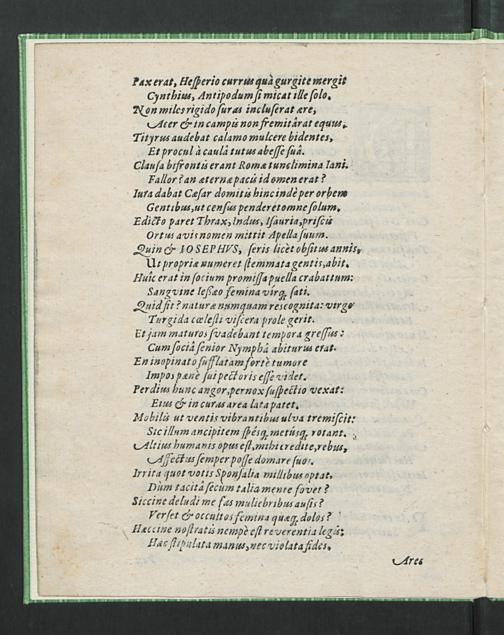 Pax erat, Hesperio currus quà gurgite mergit
Cynthius, Antipodum si micat ille solo.
Non miles rigido suras incluserat ære,
Acer & in campis non fremitârat equus.
Tityrus audebat calamo mulcere bidentes,
Et procul à caulâ tutus abesse suâ.
Clausa bifrontis erant Romæ tunc limina Iani.
Fallor? an æternæ pacis id omen erat?
Iura dabat Cæsar domitis hinc indè per orbem
Gentibus, ut census penderet omne solum.
Edicto paret Thrax, Indus, Isauria, priscis
Ortus avis nomen mittit Apella suum.
Quin & IOSEPHVS, seris licèt obsitus annis,
Ut propriæ numeret stemmata gentis, abit.
Huic erat in socium promissa puella crabattum:
Sangvine Iessæo femina virq; sati.
Quid fit? naturæ nunquam rescognita: virgo
Turgida cælesti viscera prole gerit.
Et jam maturos svadebant tempora gressus:
Cum sociâ senior Nymphâ abiturus erat.
En inopinato sufflatam fortè tumore
Impos pænè sui pectoris esse videt.
Perdius hunc angor, pernox suspectio vexat:
Estus & in curas area lata patet.
Mobilis ut ventis vibrantibus ulva tremiscit:
Sic illum ancipitem spésq; metúsq; rotant.
Altius humanis opus est, mihi credite, rebus,
Affectus semper posse domare suos.
Irrita quot votis Sponsalia millibus optat,
Dùm tacitâ secum talia mente fovet?
Siccine deludi me fas muliebribus ausis?
Verset & occultos femina quæq; dolos?
Hæccine nostratis nempè est reverentia legis:
Hæc stipulata manus, nec violata fides.
Ares